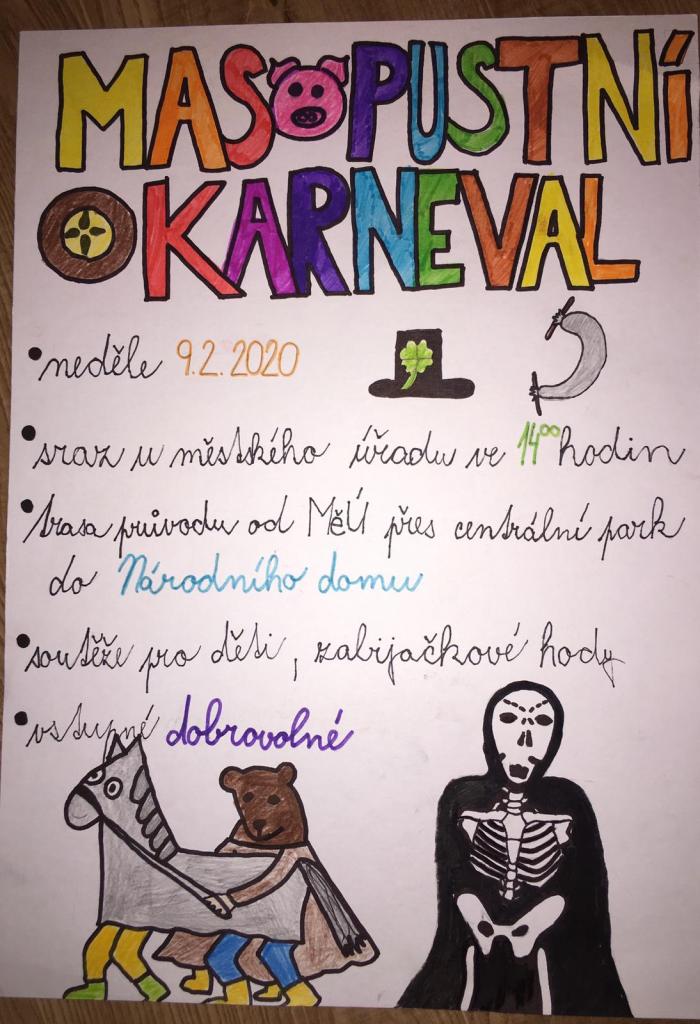 MASOPUSTNÍ
KARNEVAL
• neděle 9.2.2020
• sraz u městského úřadu ve 14⁰⁰ hodin
• trasa průvodu od MěÚ přes centrální park
do Národního domu
• soutěže pro děti, zabijačkové hody
• vstupné dobrovolné